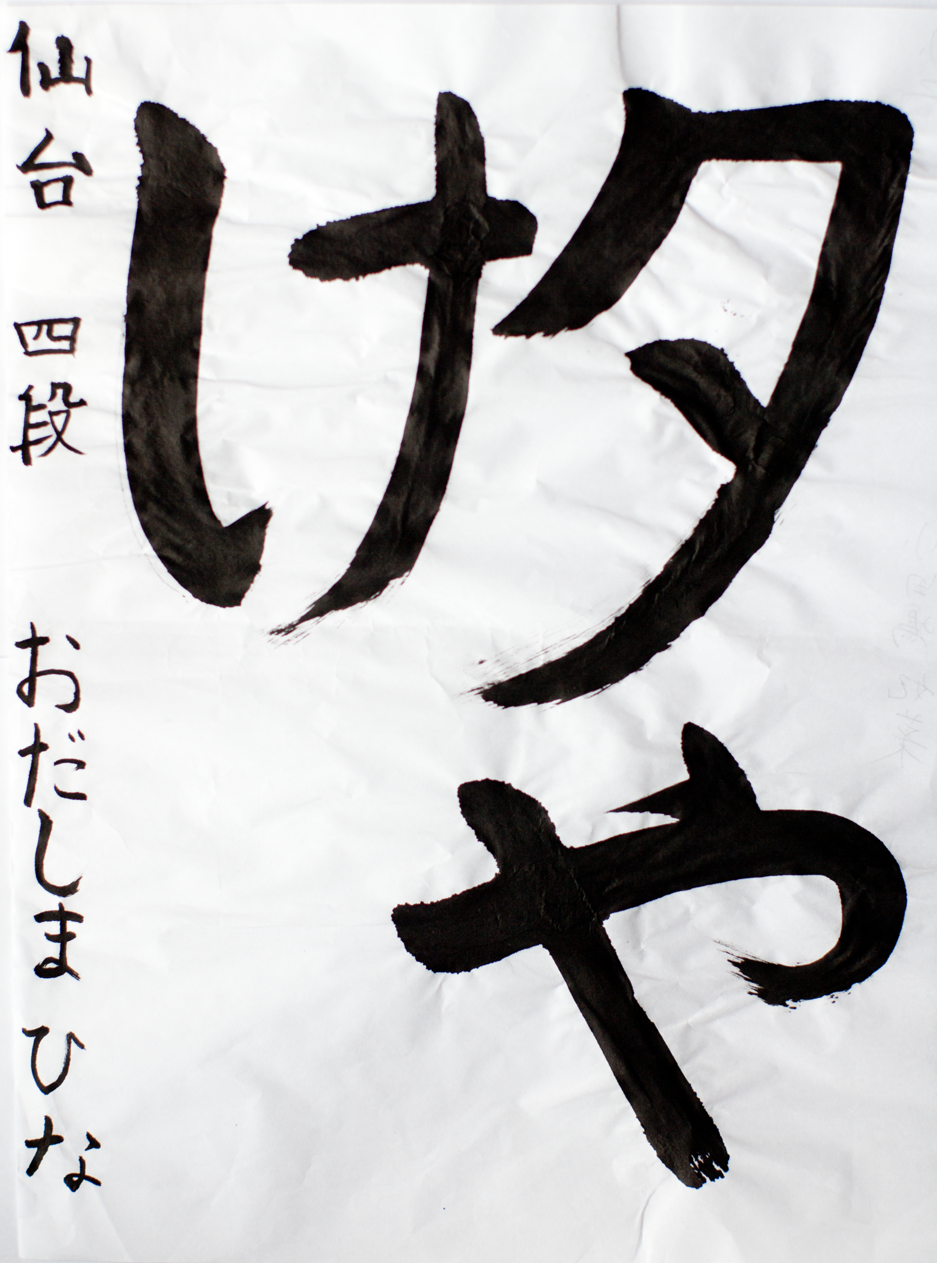 夕や
け
仙台 四段 おだしま ひな